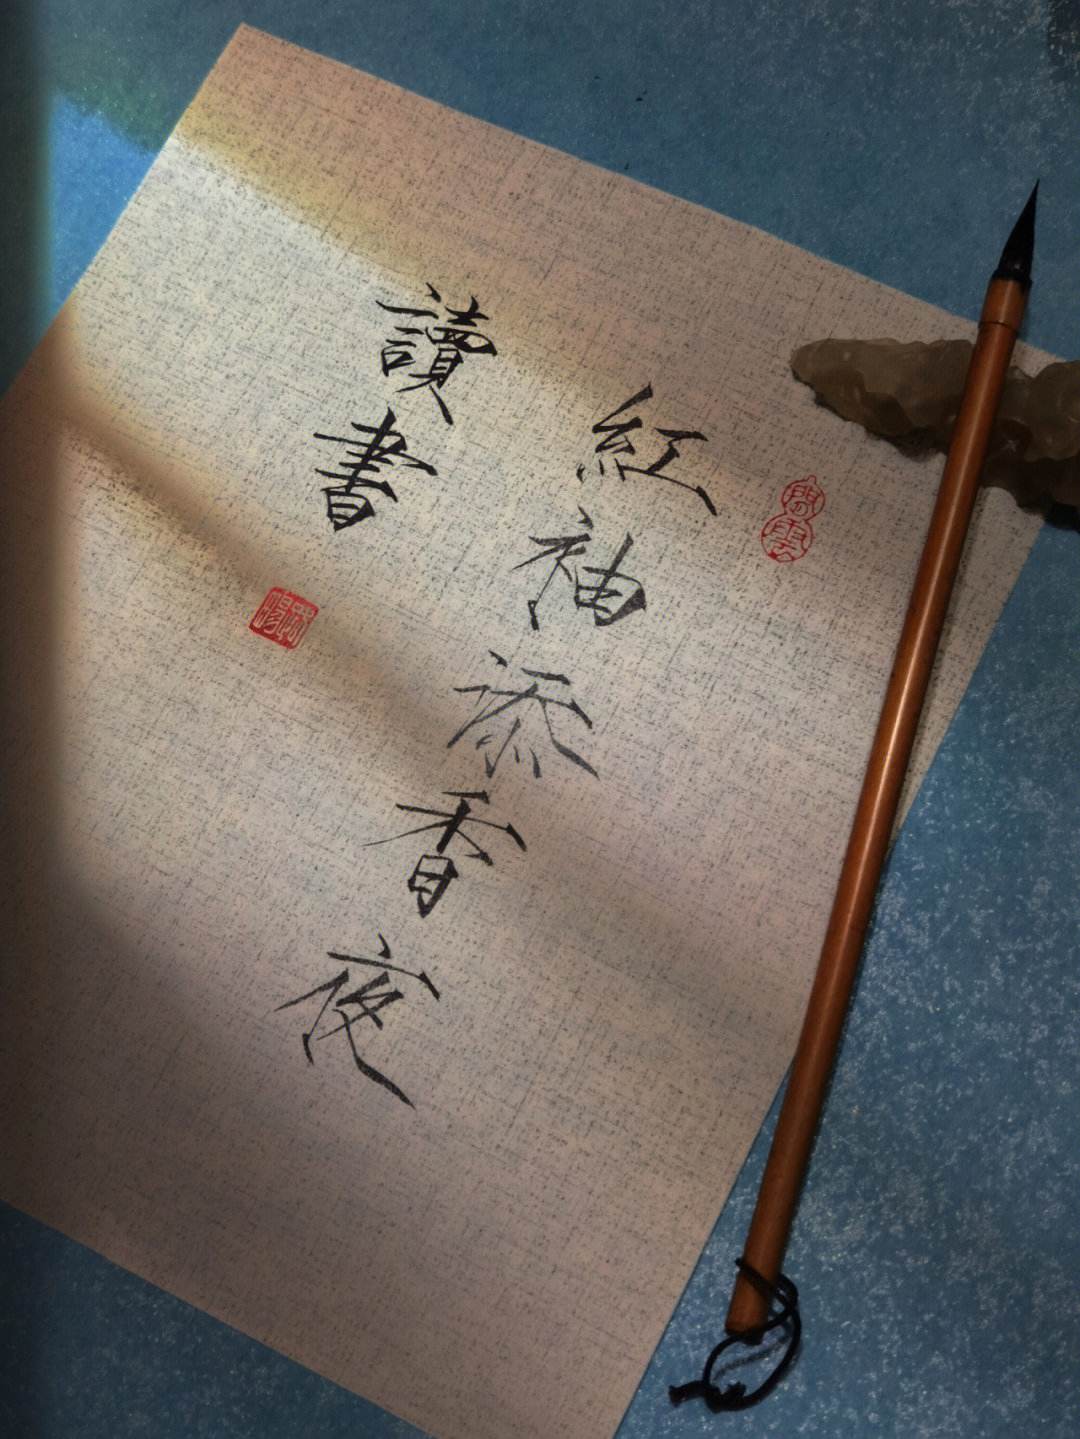 紅袖添香夜
讀書